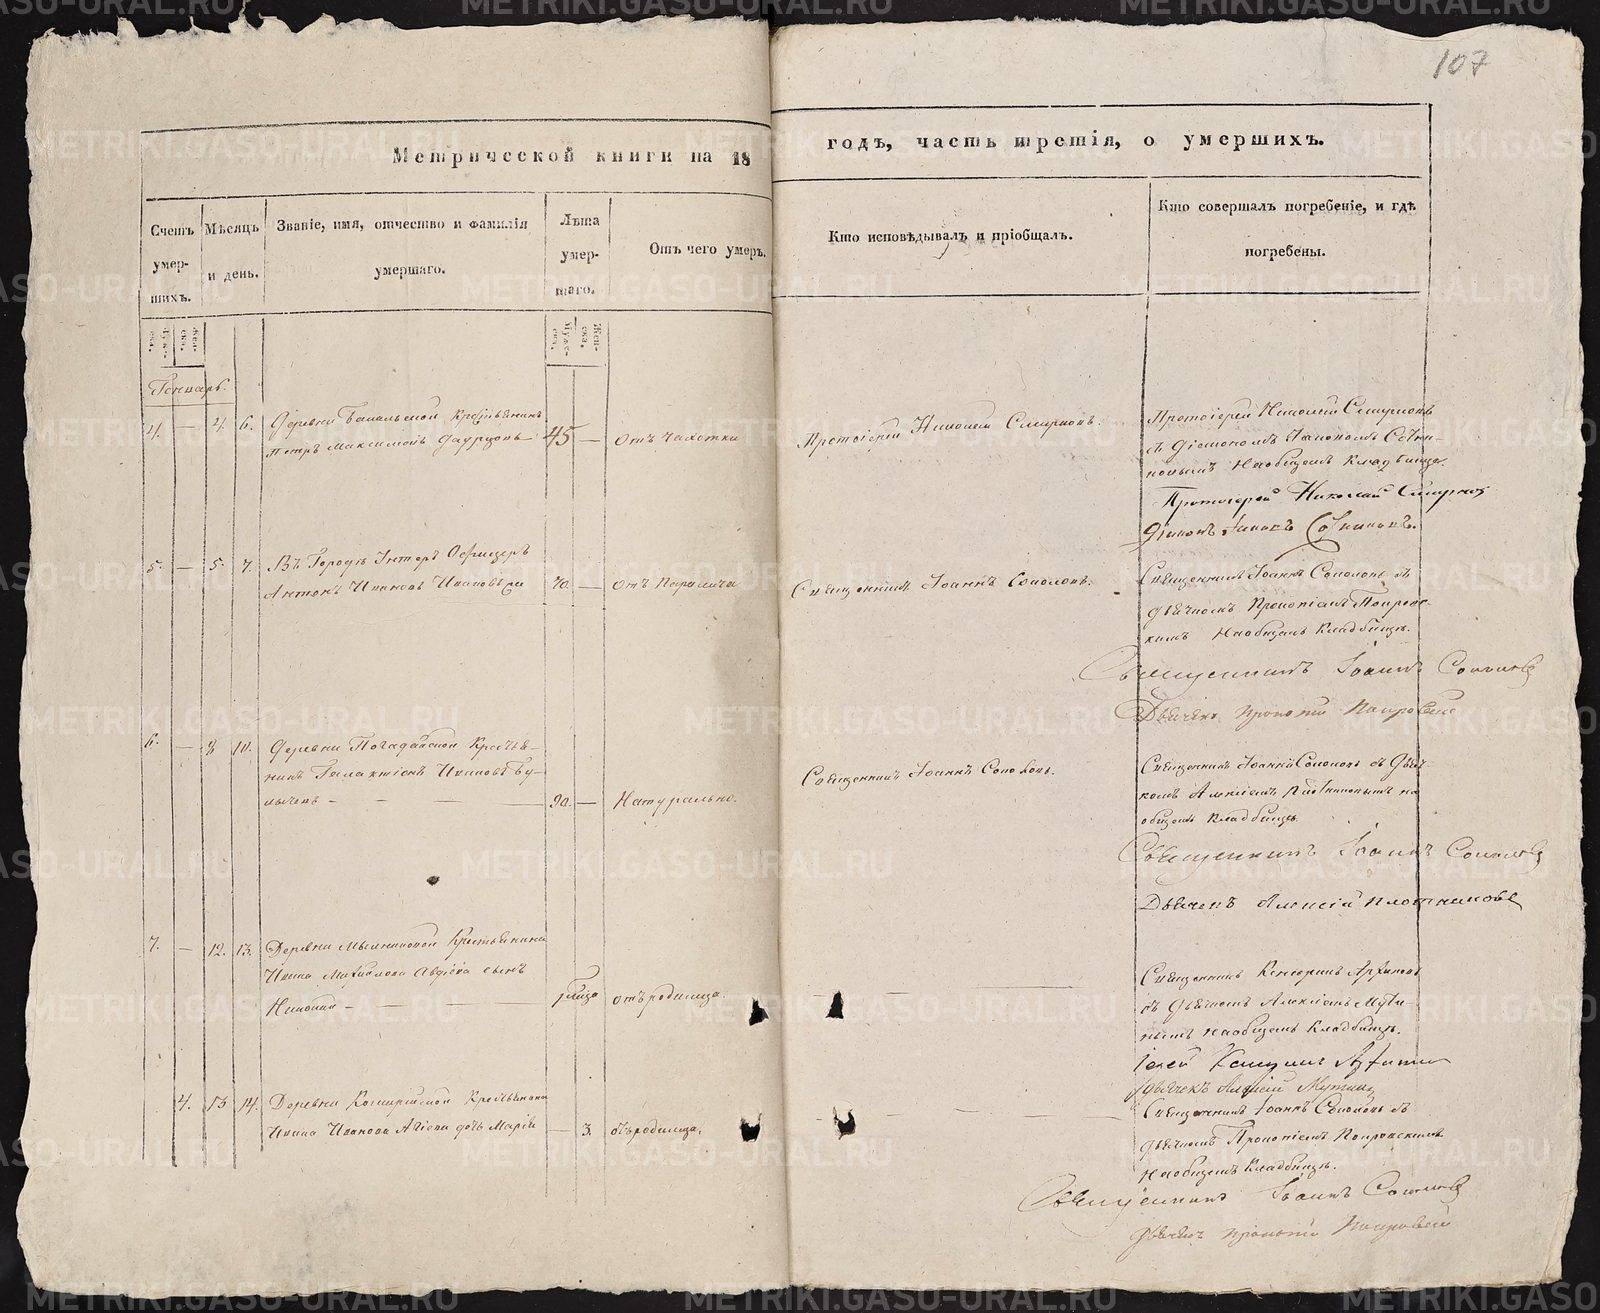 107
Метрической книги на 18 годъ, часть третія, о умершихъ.
Счетъ умер-шихъ.
Мѣсяцъ и день.
Званіе, имя, отчество и фамилія
умершаго.
Лѣта умер-шаго.
Отъ чего умеръ.
Кто исповѣдывалъ и пріобщалъ.
Кто совершалъ погребеніе, и гдѣ
погребены.
Генварь.
4. — 4. 6. Деревни Крестьянинъ
Петръ Максимовъ
45 — Отъ чахотки
Протоіерей Николай Смирновъ.
Протоіерей Николай Смирновъ
съ Діакономъ
на общемъ Кладбище.
Протоіерей Николай Смирновъ
Діаконъ
5. — 5. 7. Въ Городѣ Унтеръ Офицеръ
Антонъ Ивановъ
70. — Отъ Паралича
Священникъ Іоаннъ Соколовъ.
Священникъ Іоаннъ Соколовъ съ
Дьячкомъ Прокопіемъ Покров-
скимъ на общемъ Кладбищѣ.
Священникъ Іоаннъ Соколовъ
Дьячекъ Прокопій Покровскій
6. — 8 10. Деревни Крестья-
нинъ Галактіонъ Ивановъ Бу-
90. — Натурально.
Священникъ Іоаннъ Соколовъ.
Священникъ Іоаннъ Соколовъ съ Дьяч-
комъ Алексіемъ Плотниковымъ на
общемъ Кладбищѣ.
Священникъ Іоаннъ Соколовъ
Дьячекъ Алексій Плотниковъ
7. — 12. 13. Деревни Крестьянина
Ивана Михайлова Авдіева сынъ
Николай —
отъ родимца.
Священникъ
съ Дьячкомъ Алексіемъ
на общемъ Кладбищѣ.
Іерей
Дьячекъ Алексій
4. 13 14. Деревни Крестьянина
Ивана Иванова дочь Марія
— 3. отъ родимца.
Священникъ Іоаннъ Соколовъ съ
Дьячкомъ Прокопіемъ Покровскимъ
На общемъ Кладбищѣ.
Священникъ Іоаннъ Соколовъ
Дьячекъ Прокопій Покровскій
METRIKI.GASO-URAL.RU